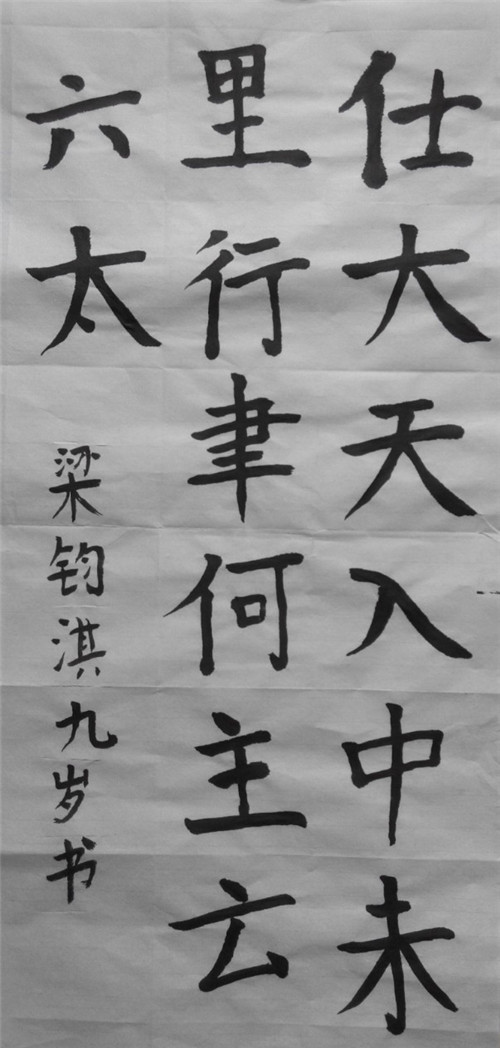 仕大天入中未
里行聿何主云
六太
梁钧淇九岁书